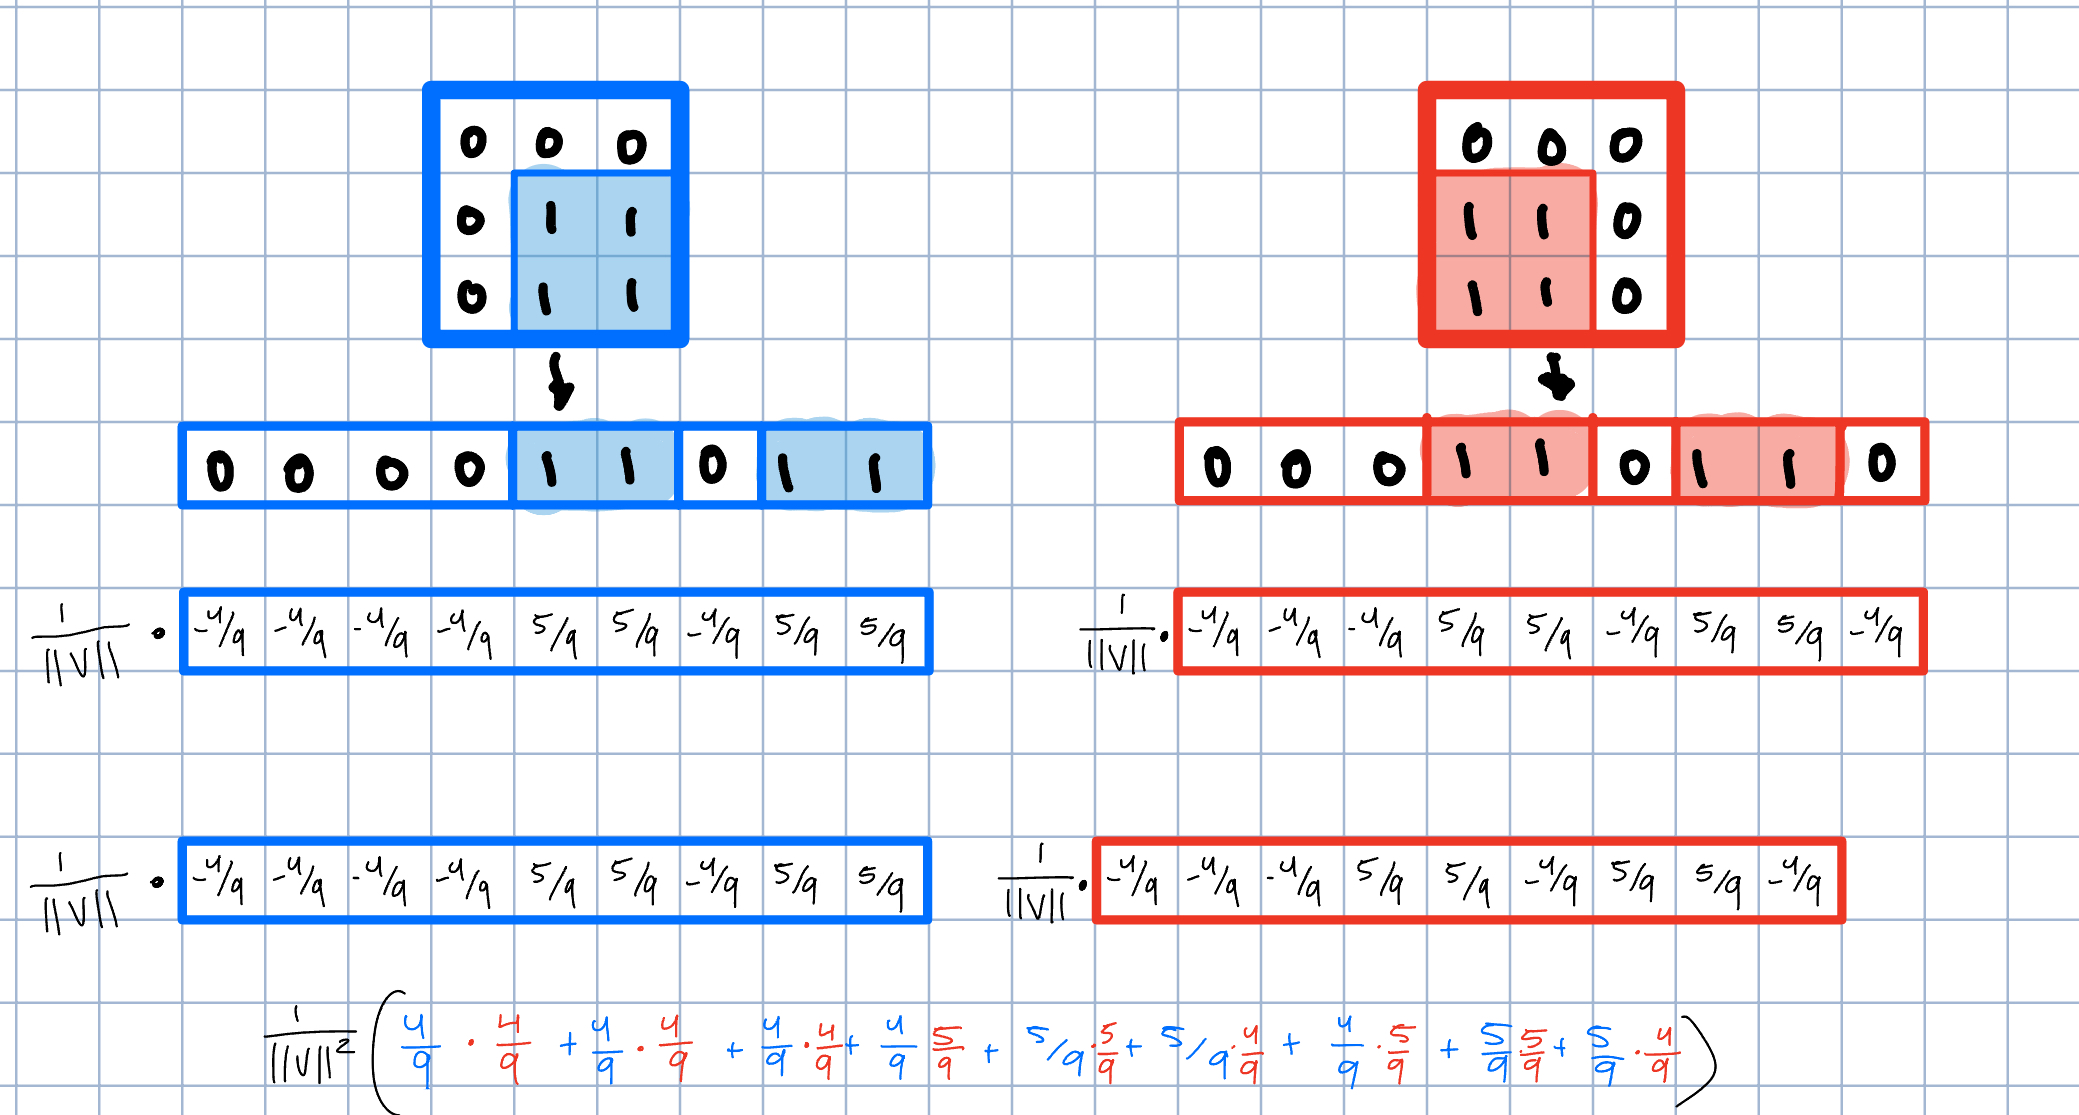 0 0 0
0 1 1
0 1 1
0 0 0
1 1 0
1 1 0
0 0 0 0 1 1 0 1 1
0 0 0 1 1 0 1 1 0
1/||V|| · -4/9 -4/9 -4/9 -4/9 5/9 5/9 -4/9 5/9 5/9
1/||V|| · -4/9 -4/9 -4/9 5/9 5/9 -4/9 5/9 5/9 -4/9
1/||V|| · -4/9 -4/9 -4/9 -4/9 5/9 5/9 -4/9 5/9 5/9
1/||V|| · -4/9 -4/9 -4/9 5/9 5/9 -4/9 5/9 5/9 -4/9
1/||V||² (4/9 · 4/9 + 4/9 · 4/9 + 4/9 · 4/9 + 4/9 5/9 + 5/9 · 5/9 + 5/9 · 4/9 + 4/9 · 5/9 + 5/9 5/9 + 5/9 · 4/9)